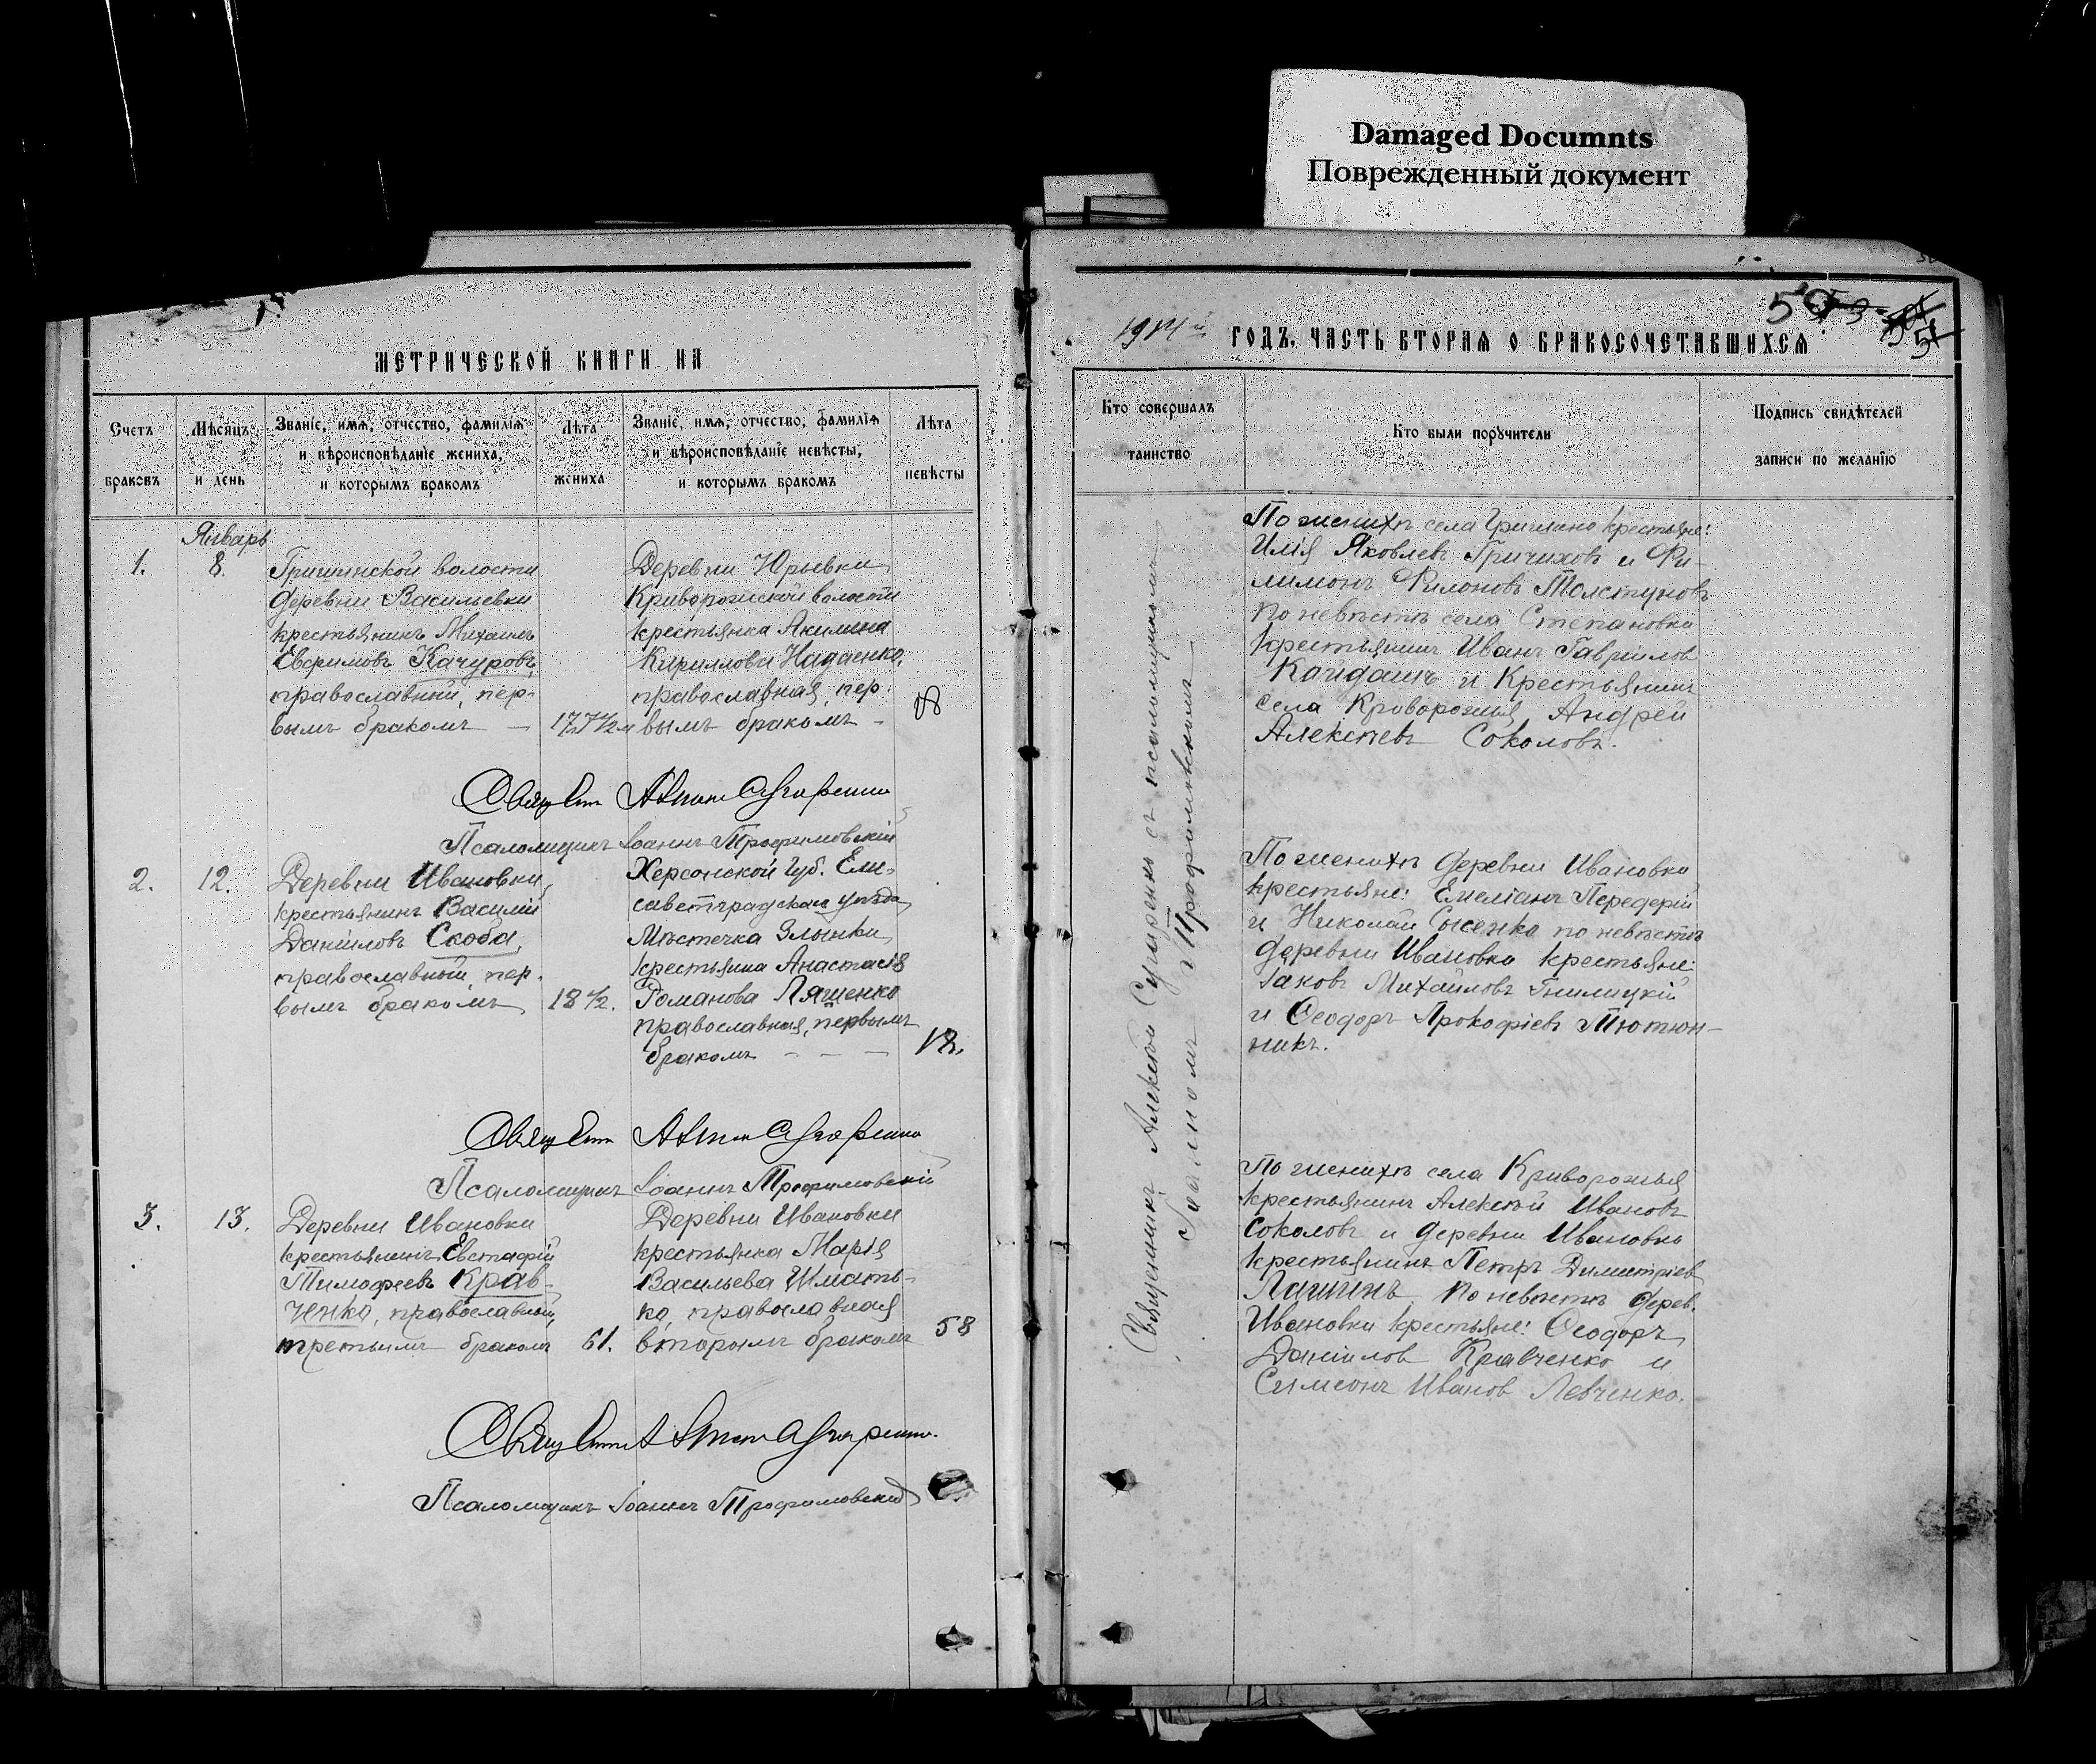 Damaged Documnts
Поврежденный документ
МЕТРИЧЕСКОЙ КНИГИ НА
Счетъ браковъ
Мѣсяцъ и день
Званіе, имя, отчество, фамилія
и вѣроисповѣданіе жениха,
и которымъ бракомъ
Лѣта жениха
Званіе, имя, отчество, фамилія
и вѣроисповѣданіе невѣсты,
и которымъ бракомъ
Лѣта невѣсты
Январь
1.
8.
Гришинской волости
деревни Васильевки
крестьянинъ Михаилъ
Евфимовъ Качуровъ,
православный, пер-
вымъ бракомъ —
Деревни Юрьевки
Криворожской волости
крестьянка Акилина
Кириллова Надаенко,
православная, пер-
вымъ бракомъ -
Псаломщикъ Іоаннъ Трофимовскій
2.
12.
Деревни Ивановки,
крестьянинъ Василій
Даніиловъ Скоба,
православный, пер-
вымъ бракомъ
18 1/2.
Херсонской Губ. Ели-
саветградскаго уѣзда,
Мѣстечка Злынки,
крестьянка Анастасія
Романова Ляшенко
православная, первымъ
бракомъ - - -
18.
Псаломщикъ Іоаннъ Трофимовскій
3.
13.
Деревни Ивановки
крестьянинъ Евстафій
Тимофеевъ Крав-
ченко, православный,
третьимъ бракомъ
61.
Деревни Ивановки
крестьянка Марія
Васильева Шмать-
ко, православная
вторымъ бракомъ
58
Псаломщикъ Іоаннъ Трофимовскій
1914й ГОДЪ, ЧАСТЬ ВТОРАЯ О БРАКОСОЧЕТАВШИХСЯ
Кто совершалъ
таинство
Кто были поручители
Подпись свидѣтелей
записи по желанію
Священникъ Алексѣй съ псаломщикомъ
Іоанномъ Трофимовскимъ —
По женихѣ села Гришино крестьяне:
Илія Яковлевъ Гричиховъ и Фи-
лимонъ Филоновъ Толстуновъ
по невѣстѣ села Степановки
крестьянинъ Иванъ Гавріилов
Кайдашъ и Крестьянинъ
села Криворожья Андрей
Алексѣевъ Соколовъ.
По женихѣ деревни Ивановки
крестьяне: Емеліанъ Передерій
и Николай Сысенко по невѣстѣ
деревни Ивановки крестьяне:
Іаковъ Михайловъ Гнилицкій
и Ѳеодоръ Прокофіевъ Тютюн-
никъ.
По женихѣ села Криворожья
крестьянинъ Алексѣй Ивановъ
Соколовъ и деревни Ивановки
крестьянинъ Петръ Димитріев
Лашинъ по невѣстѣ дерев.
Ивановки крестьяне: Ѳеодоръ
Даніилов Кравченко и
Симеонъ Иванов Левченко.